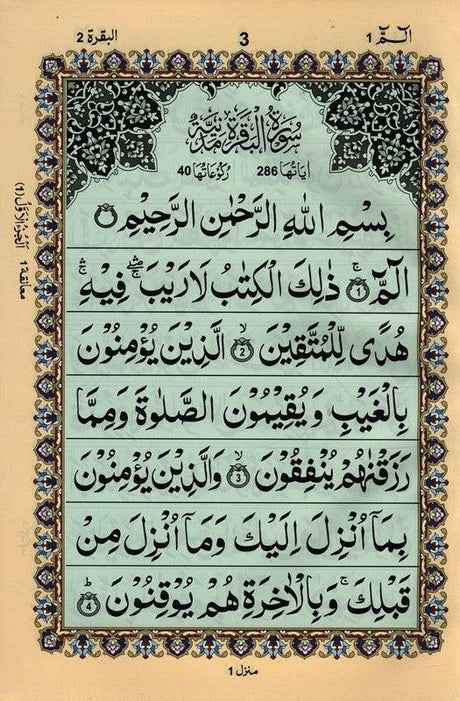 الٓـمّٓ 1
3
البقرة 2
سُوْرَةُ الْبَقَرَةِ مَدَنِيَّةٌ
اٰيَاتُهَا 286
رُكُوْعَاتُهَا 40
بِسْمِ اللّٰهِ الرَّحْمٰنِ الرَّحِيْمِ
الٓمّٓ ۚ 1 ذٰلِكَ الْكِتٰبُ لَا رَيْبَ ۛۖ فِيْهِ ۛۚ
هُدًى لِّلْمُتَّقِيْنَ ۙ 2 الَّذِيْنَ يُؤْمِنُوْنَ
بِالْغَيْبِ وَيُقِيْمُوْنَ الصَّلٰوةَ وَمِمَّا
رَزَقْنٰهُمْ يُنْفِقُوْنَ ۙ 3 وَالَّذِيْنَ يُؤْمِنُوْنَ
بِمَآ اُنْزِلَ اِلَيْكَ وَمَآ اُنْزِلَ مِنْ
قَبْلِكَ ۚ وَبِالْاٰخِرَةِ هُمْ يُوْقِنُوْنَ ؕ 4
اَلْجُزْءُ الْاَوَّلُ (1)
معانقة 1
منزل 1